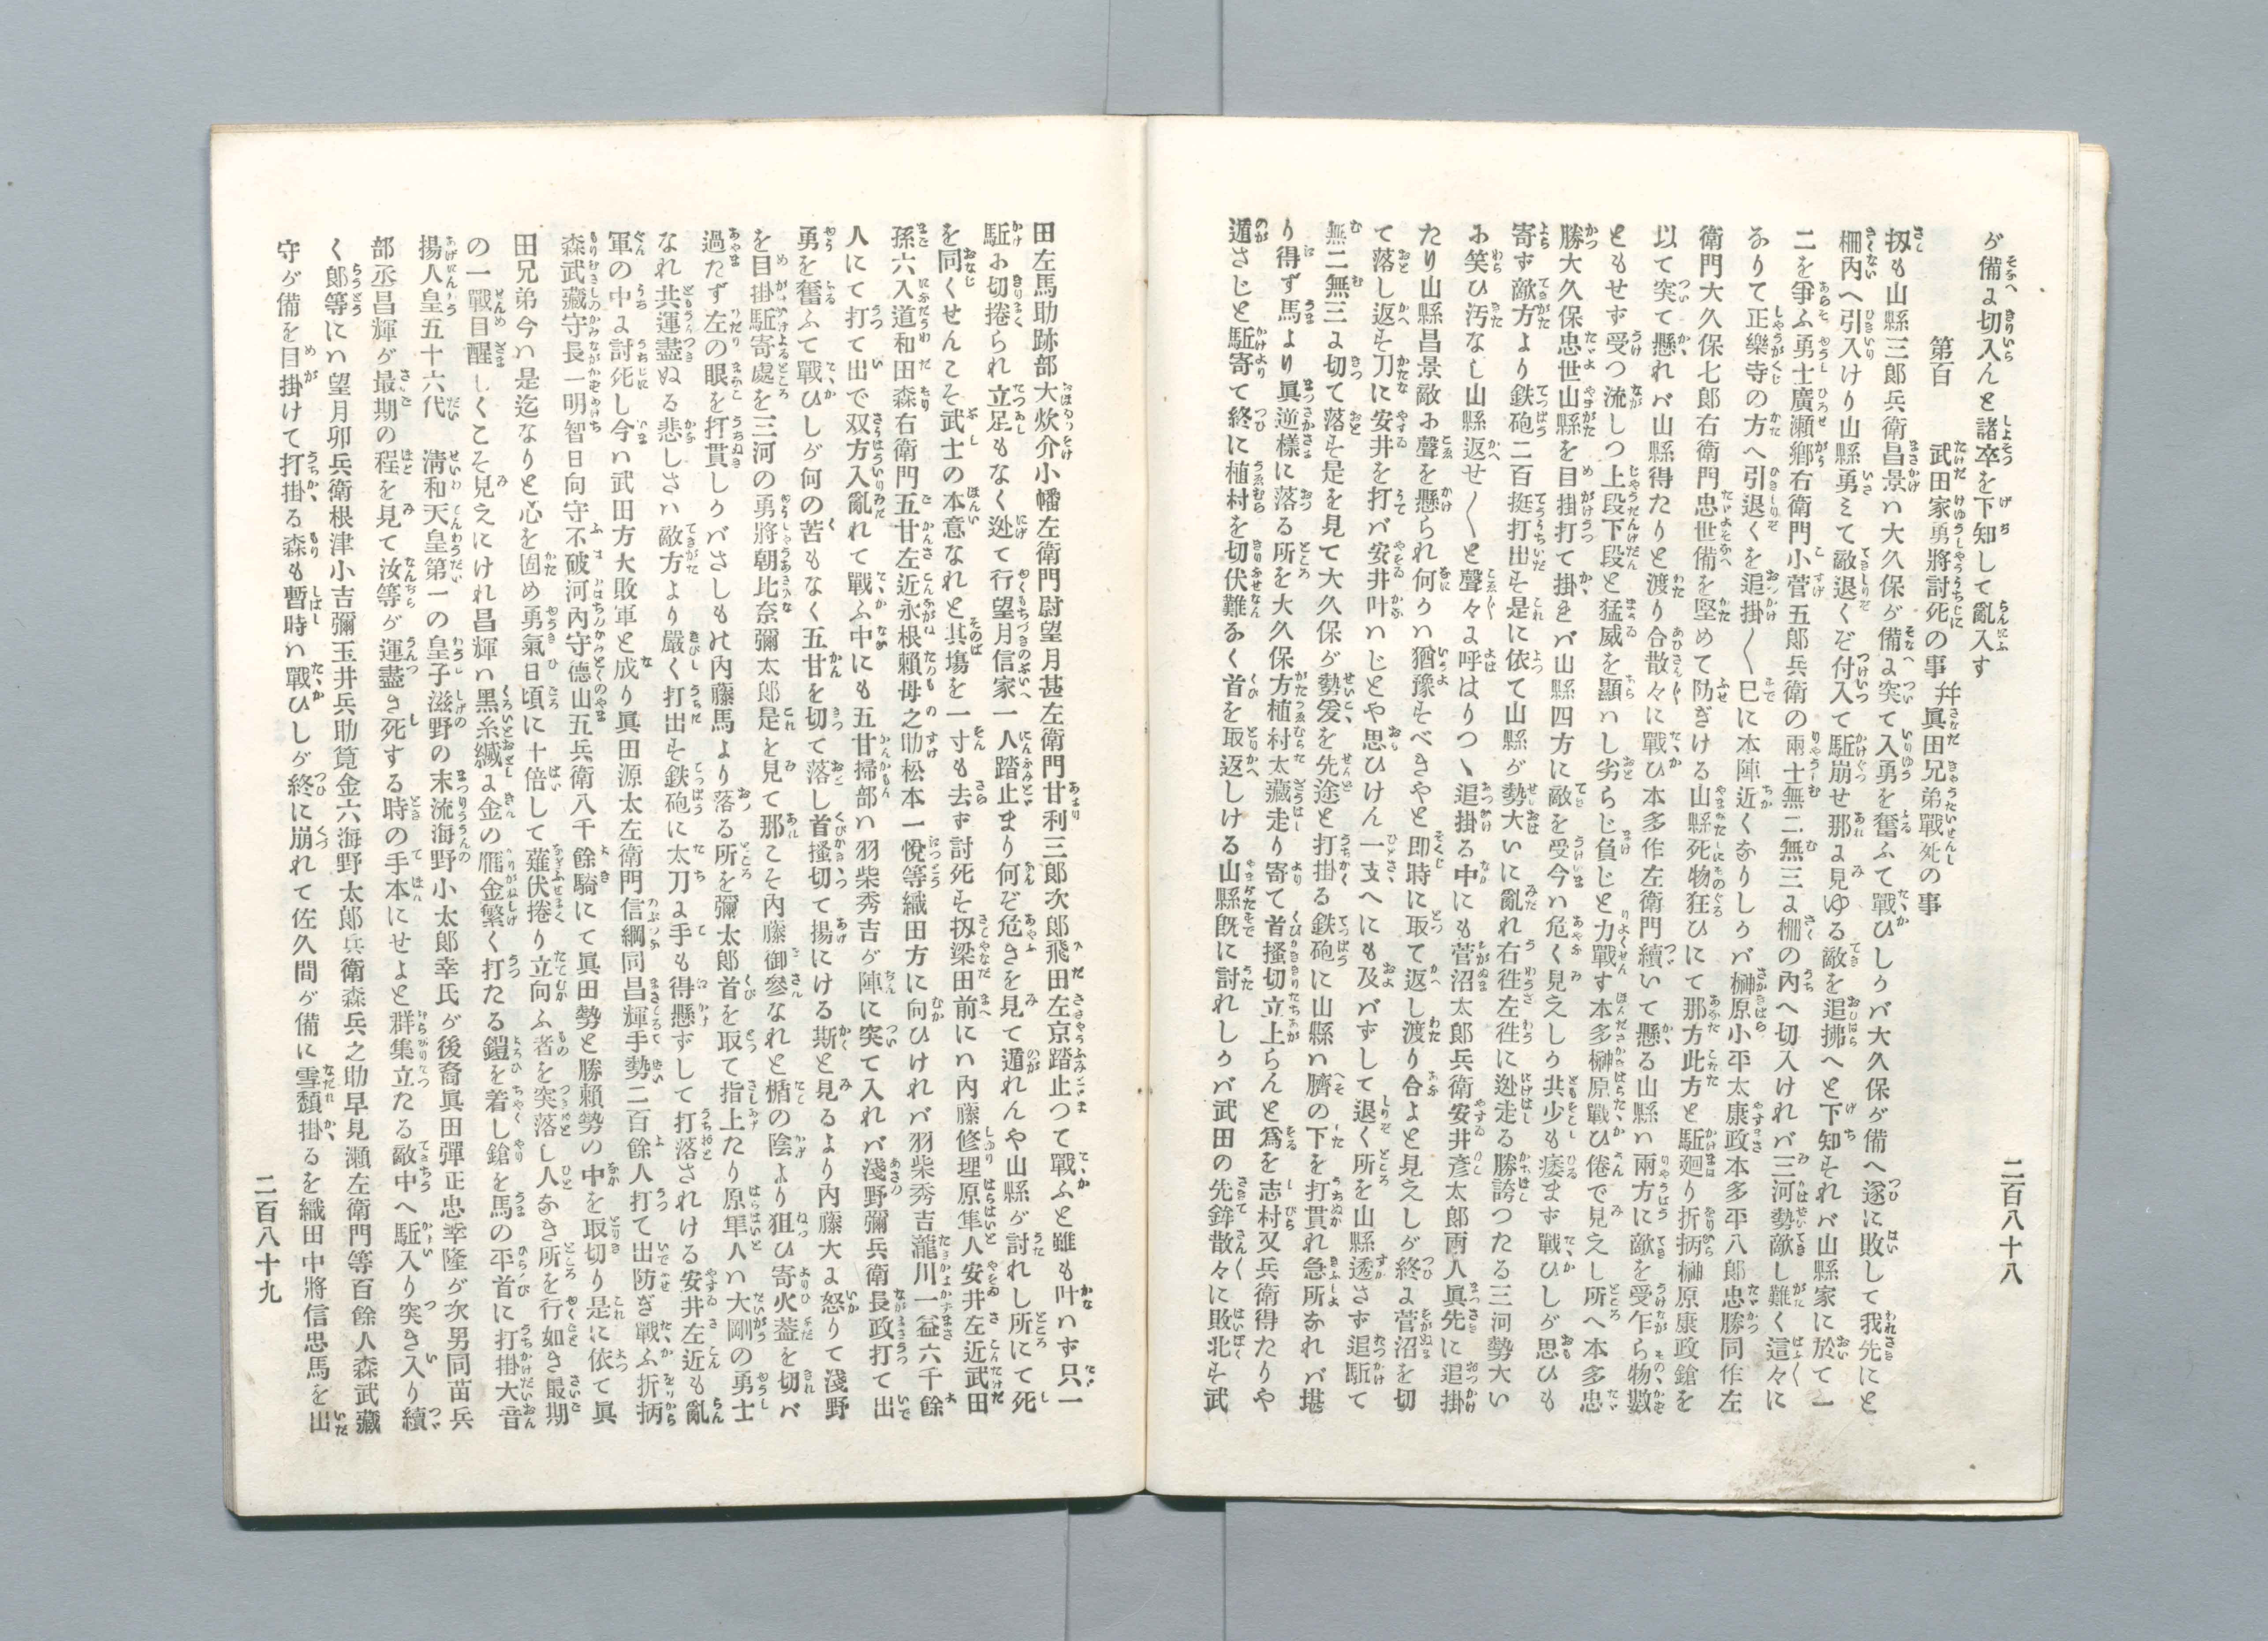 二百八十八
が備に切入んと諸卒を下知して亂入す
第百　武田家勇將討死の事　并眞田兄弟戰死の事
扨も山縣三郎兵衛昌景ハ大久保が備に突て入勇を奮ふて戰ひしかバ大久保が備へ遂に敗して我先にと
柵內へ引入けり山縣勇ミて敵退くぞ付入て駈崩せ那に見ゆる敵を追拂へと下知すれバ山縣家に於て一
二を爭ふ勇士廣瀨鄕右衛門小菅五郎兵衛の兩士無二無三に柵の內へ切入けれバ三河勢敵し難く這々に
なりて正樂寺の方へ引退くを追掛〱巳に本陣近くなりしかバ榊原小平太康政本多平八郎忠勝同作左
衛門大久保七郎右衛門忠世備を堅めて防ぎける山縣死物狂ひにて那方此方と駈廻り折柄榊原康政鎗を
以て突て懸れバ山縣得たりと渡り合散々に戰ひ本多作左衛門續いて懸る山縣ハ兩方に敵を受乍ら物數
ともせず受つ流しつ上段下段と猛威を顯ハし劣らじ負じと力戰す本多榊原戰ひ倦で見えし所へ本多忠
勝大久保忠世山縣を目掛打て掛れバ山縣四方に敵を受今ハ危く見えしか共少も痿まず戰ひしが思ひも
寄ず敵方より鉄砲二百挺打出す是に依て山縣が勢大いに亂れ右徃左徃に迯走る勝誇つたる三河勢大い
に笑ひ汚なし山縣返せ〱と聲々に呼はりつゝ追掛る中にも菅沼太郎兵衛安井彥太郎兩人眞先に追掛
たり山縣昌景敵に聲を懸られ何かハ猶豫すべきやと即時に取て返し渡り合よと見えしが終に菅沼を切
て落し返す刀に安井を打バ安井叶ハじとや思ひけん一支へにも及バずして退く所を山縣透さず追駈て
無二無三に切て落す是を見て大久保が勢爰を先途と打掛る鉄砲に山縣ハ臍の下を打貫れ急所なれバ堪
り得ず馬より眞逆樣に落る所を大久保方植村太藏走り寄て首搔切立上らんと爲を志村又兵衛得たりや
遁さじと駈寄て終に植村を切伏難なく首を取返しける山縣旣に討れしかバ武田の先鋒散々に敗北す武
田左馬助跡部大炊介小幡左衛門尉望月甚左衛門甘利三郎次郎飛田左京踏止つて戰ふと雖も叶ハず只一
駈に切捲られ立足もなく迯て行望月信家一人踏止まり何ぞ危きを見て遁れんや山縣が討れし所にて死
を同くせんこそ武士の本意なれと其塲を一寸も去ず討死す扨梁田前にハ內藤修理原隼人安井左近武田
孫六入道和田森右衛門五甘左近永根賴母之助松本一悅等織田方に向ひけれバ羽柴秀吉瀧川一益六千餘
人にて打て出で双方入亂れて戰ふ中にも五甘掃部ハ羽柴秀吉が陣に突て入れバ淺野彌兵衛長政打て出
勇を奮ふて戰ひしが何の苦もなく五甘を切て落し首搔切て揚にける斯と見るより內藤大に怒りて淺野
を目掛駈寄處を三河の勇將朝比奈彌太郎是を見て那こそ內藤御參なれと楯の陰より狙ひ寄火葢を切バ
過たず左の眼を打貫しかバさしもの內藤馬より落る所を彌太郎首を取て指上たり原隼人ハ大剛の勇士
なれ共運盡ぬる悲しさハ敵方より嚴く打出す鉄砲に太刀に手も得懸ずして打落されける安井左近も亂
軍の中に討死し今ハ武田方大敗軍と成り眞田源太左衛門信綱同昌輝手勢二百餘人打て出防ぎ戰ふ折柄
森武藏守長一明智日向守不破河內守德山五兵衛八千餘騎にて眞田勢と勝賴勢の中を取切り是に依て眞
田兄弟今ハ是迄なりと心を固め勇氣日頃に十倍して薙伏捲り立向ふ者を突落し人なき所を行如き最期
の一戰目醒しくこそ見えにけれ昌輝ハ黑糸縅に金の鴈金繁く打たる鎧を着し鎗を馬の平首に打掛大音
揚人皇五十六代　淸和天皇第一の皇子滋野の末流海野小太郎幸氏が後裔眞田彈正忠幸隆が次男同苗兵
部丞昌輝が最期の程を見て汝等が運盡き死する時の手本にせよと群集立たる敵中へ駈入り突き入り續
く郞等にハ望月卯兵衛根津小吉彌玉井兵助筧金六海野太郎兵衛森兵之助早見瀨左衛門等百餘人森武藏
守が備を目掛けて打掛る森も暫時ハ戰ひしが終に崩れて佐久間が備に雪頽掛るを織田中將信忠馬を出
二百八十九